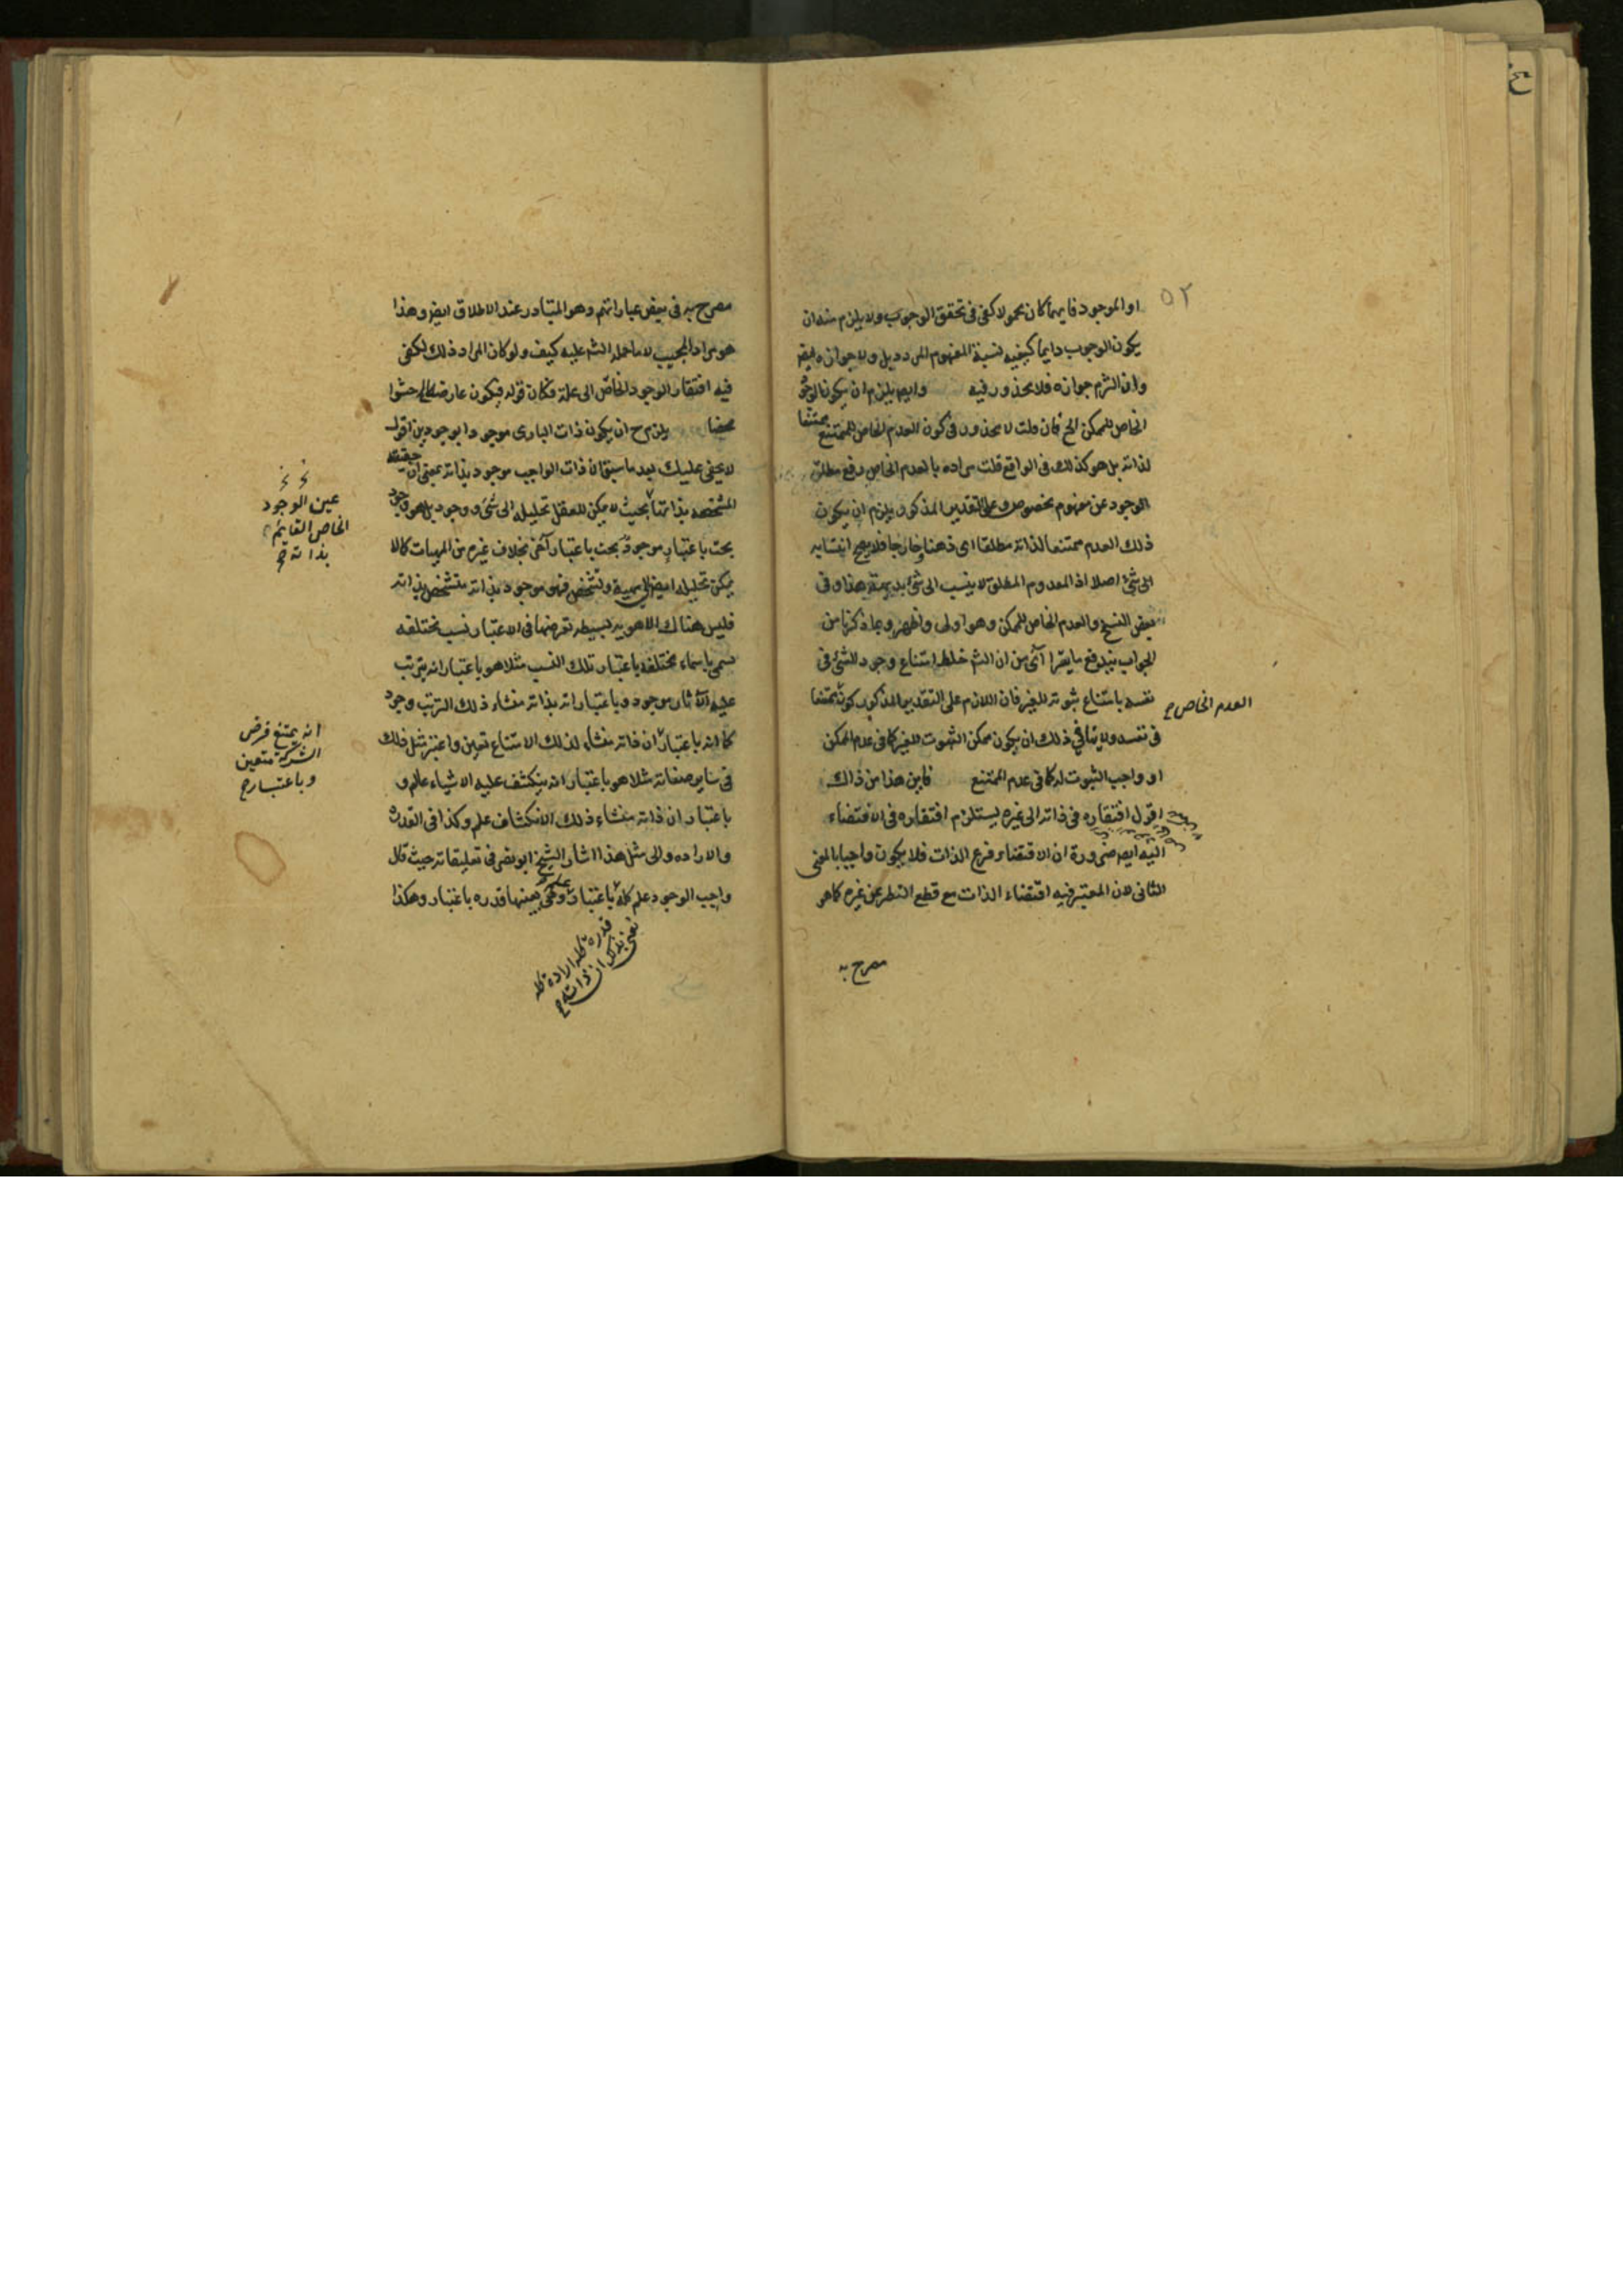 ٥٢
او الموجود فايهما كان محمولا كفى فى تحقق الوجوب ولا يلزم منه ان
يكون الوجوب دايما كيفية لنسبة المفهوم المردد بل ولا جوازه وايضا
وان التزم جوازه فلا محذور فيه وايضا يلزم ان يكون الوجود
الخاص للممكن الخ فان قلت لا محذور فى كون العدم الخاص للممتنع ممتنعا
لذاته بل هو كذلك فى الواقع قلت مراده بالعدم الخاص رفع مطلق
الوجود عن مفهوم بخصوصه وعلى التقدير المذكور يلزم ان يكون
ذلك العدم ممتنعا لذاته مطلقا اى ذهنا وخارجا فلا يصح انتسابه
الى شئ اصلا اذ المعدوم المطلق لا ينسب الى شئ بديهة هذا وفى
بعض النسخ والعدم الخاص للممكن وهو اولى واظهر وبما ذكرنا من
الجواب يندفع ما يترا آى من ان الشم خلط امتناع وجود الشئ فى
نفسه بامتناع ثبوته للغير فان اللازم على التقدير المذكور كون ممتنعا
العدم الخاص
فى نفسه ولا ينافى ذلك ان يكون ممكن الثبوت للغير كما فى عدم الممكن
او واجب الثبوت له كما فى عدم الممتنع فاين هذا من ذاك
اقول افتقاره فى ذاته الى غيره يستلزم افتقاره فى الاقتضاء
اليه ايضا ضرورة ان الاقتضاء فرع الذات فلا يكون واجبا بالمعنى
الثانى لان المعتبر فيه اقتضاء الذات مع قطع النظر عن غيره كما هو
مصرح به
مصرح به فى بعض عباراتهم وهو المتبادر عند الاطلاق ايضا وهذا
هو مراد المجيب لا ما حمله الشم عليه كيف ولو كان المراد ذلك لكفى
فيه افتقار الوجود الخاص الى علة فكان قوله فيكون عارضا حشوا
محضا يلزم ح ان يكون ذات البارى موجودا بوجودين اقول
لا يخفى عليك بعد ما سبق ان ذات الواجب موجود بذاته بمعنى ان حقيقته
المشخصه بذاتها بحيث لا يمكن للعقل تحليله الى شئ ووجود بل هو وجود
عين الوجود
الخاص القايم
بذاته
بحت باعتبار موجود بحت باعتبار آخر بخلاف غيره من المهيات كما لا
يمكن تحليله ايضا الى مهية وتشخص فهو موجود بذاته متشخص بذاته
فليس هناك الا هوية بسيطه تعرضها فى الاعتبار نسب مختلفه
سمى باسماء مختلفه باعتبار تلك النسب مثلا هو باعتبار انه يترتب
عليه الآثار موجود وباعتبار انه بذاته منشاء ذلك الترتب وجود
كما انه باعتبار ان ذاته منشاء لذلك الامتناع تعين واعتبر مثل ذلك
انه يمتنع فرض
الشركة متعين
وباعتبار
فى ساير صفاته مثلا هو باعتبار انه ينكشف عليه الاشياء عالم و
باعتبار ان ذاته منشاء ذلك الانكشاف علم وكذا فى القدره
والاراده والى مثل هذا اشار الشيخ ابو نصر فى تعليقاته حيث قال
واجب الوجود علم كله باعتبار وهى بعينها قدره باعتبار وهكذا
قدرة كله ارادة كله
نعنى بذلك ان ذاته